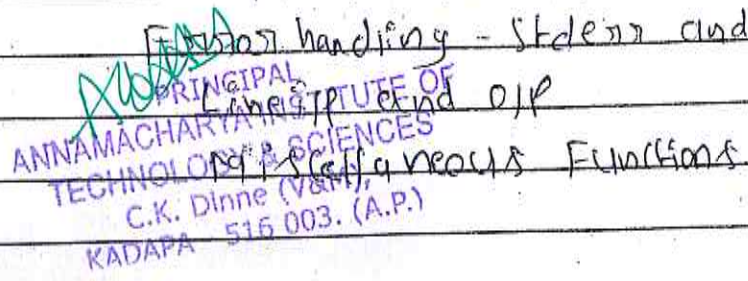 Error handling - Stderr and
Line I/P and O/P
Miscellaneous Functions
PRINCIPAL
ANNAMACHARYA INSTITUTE OF
TECHNOLOGY & SCIENCES
C.K. Dinne (V&M),
KADAPA - 516 003. (A.P.)